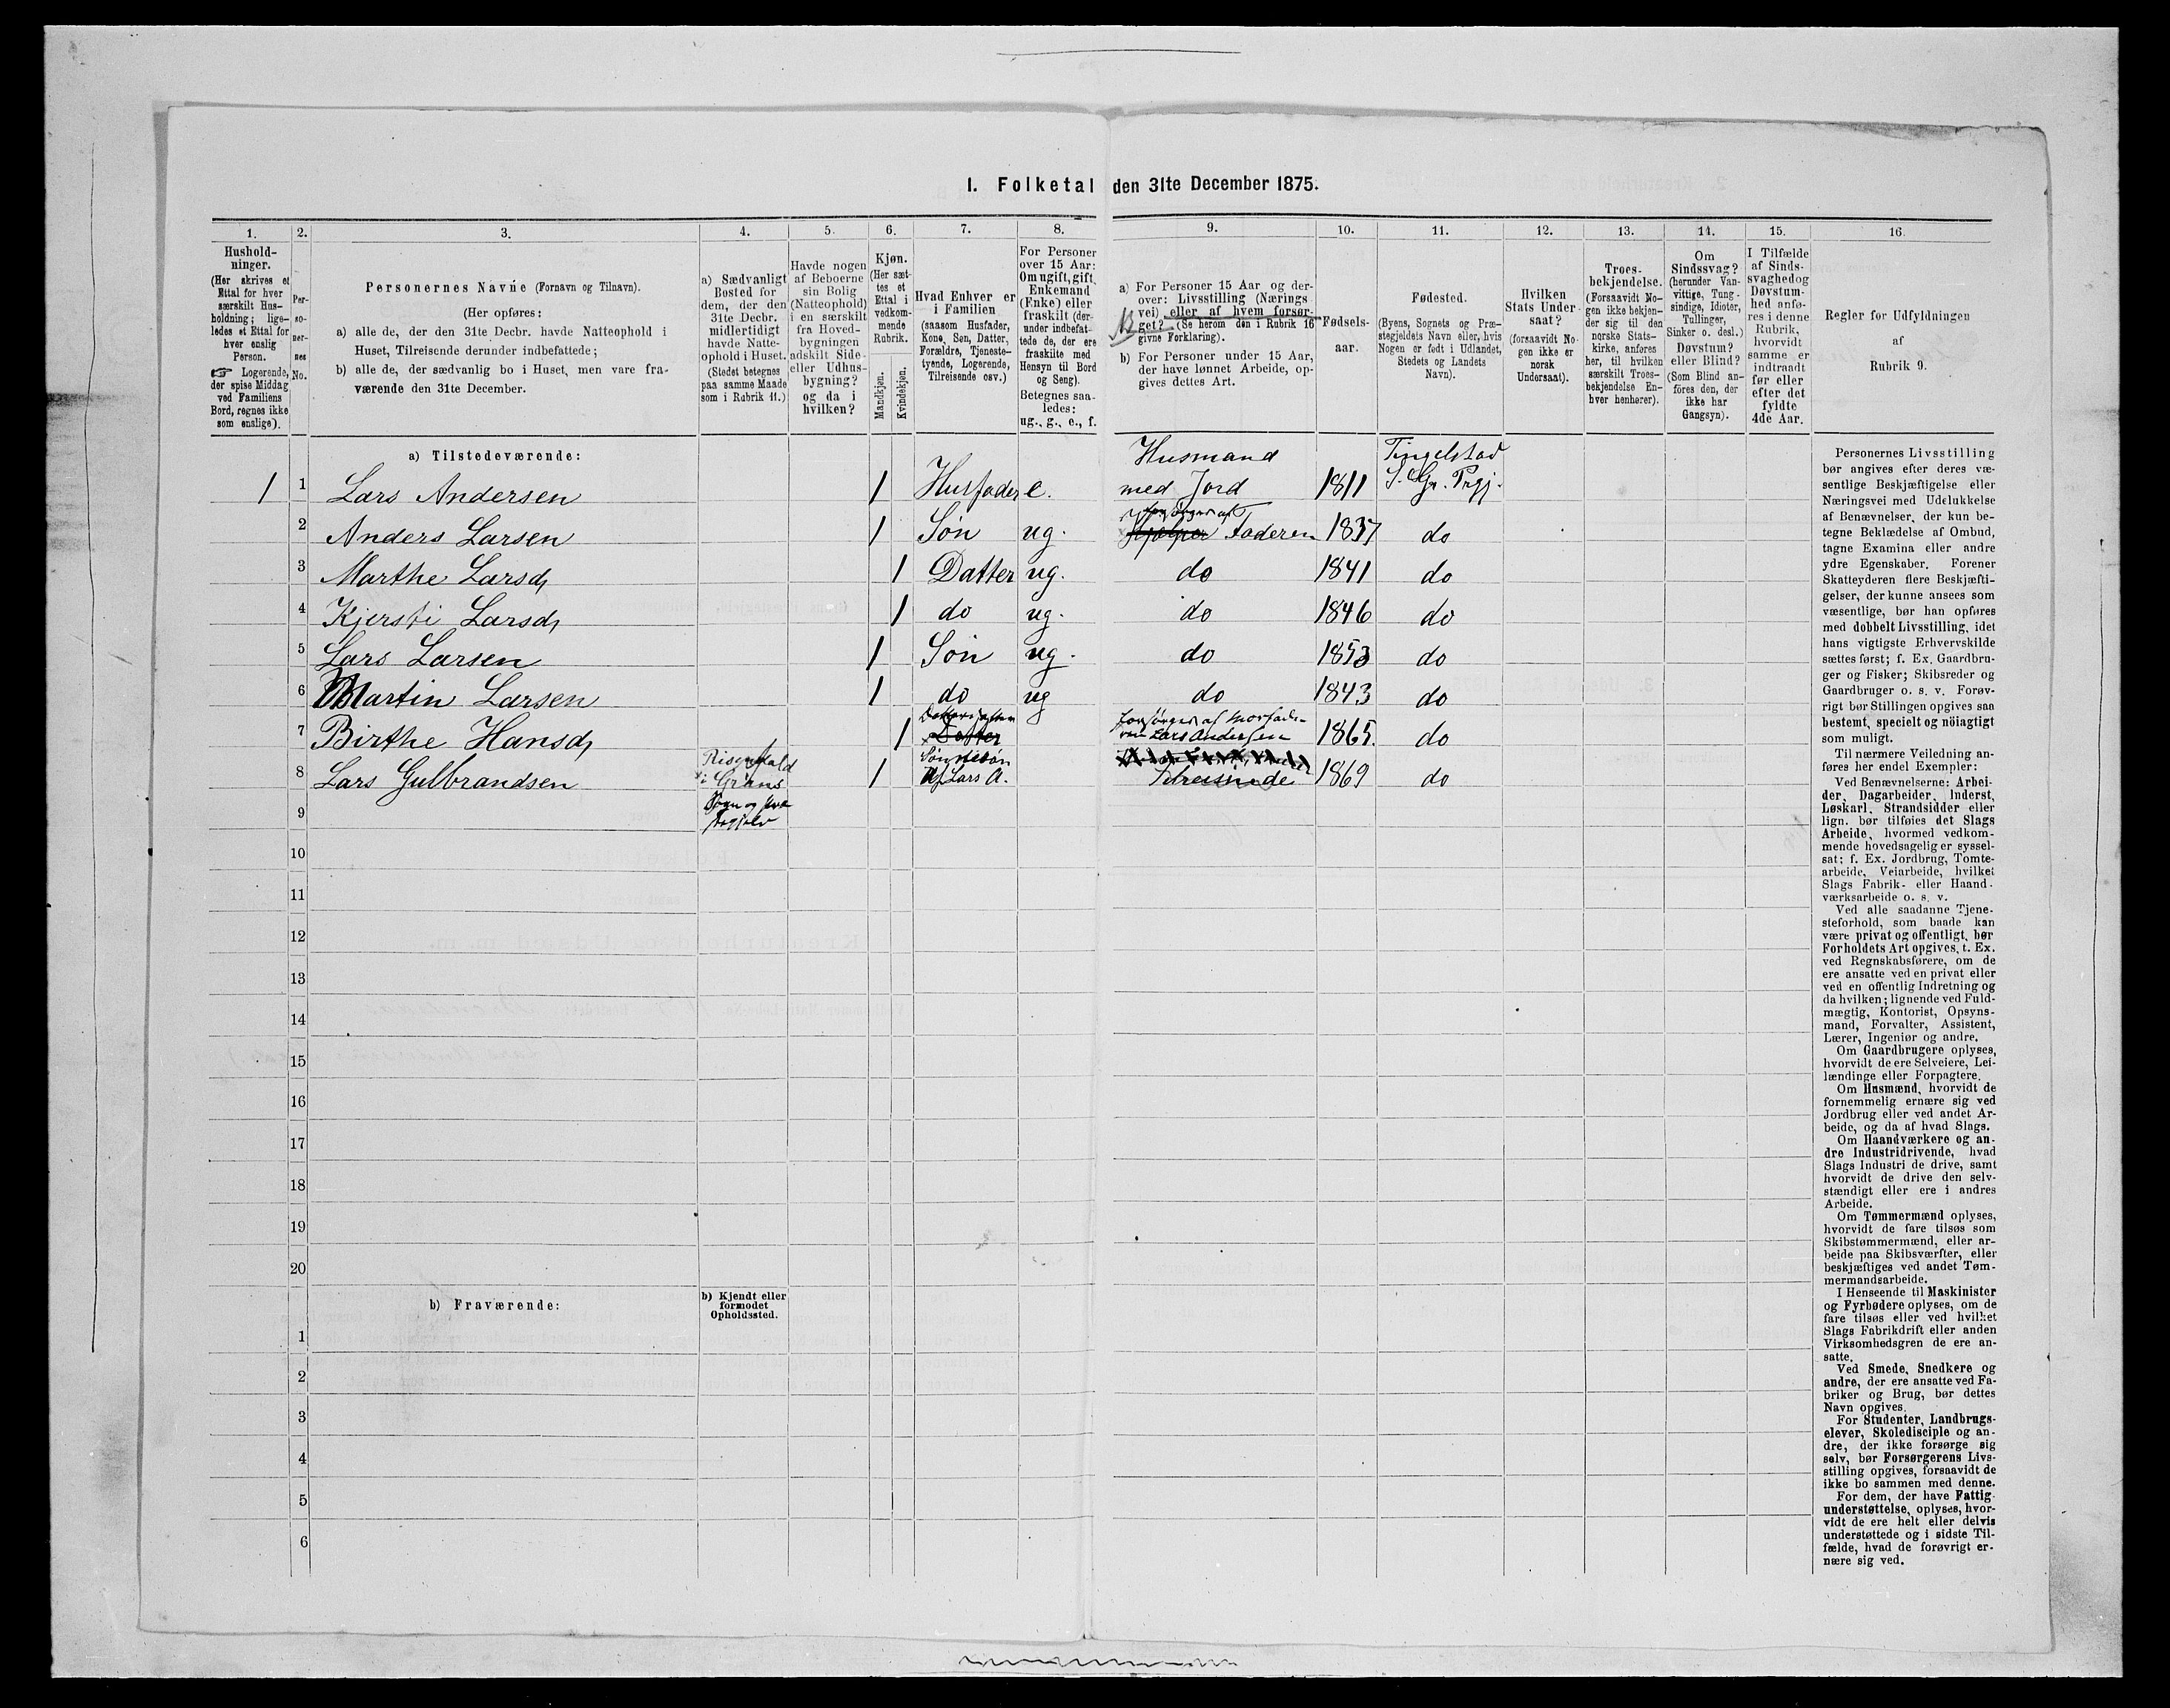 I. Folketal den 31te December 1875.
1. 2. 3. 4. 5. 6. 7. 8. 9. 10. 11. 12. 13. 14. 15. 16.
Hushold-
ninger.
(Her skrives et
Ettal for hver
særskilt Hus-
holdning; lige-
ledes et Ettal for
hver enslig
Person.
☞ Logerende,
der spise Middag
ved Familiens
Bord, regnes ikke
som enslige).
Per-
so-
ner-
nes
No.
Personernes Navne (Fornavn og Tilnavn).
(Her opføres:
a) alle de, der den 31te Decbr. havde Natteophold i
Huset, Tilreisende derunder indbefattede;
b) alle de, der sædvanlig bo i Huset, men vare fra-
værende den 31te December.
a) Sædvanligt
Bosted for
dem, der den
31te Decbr.
midlertidigt
havde Natte-
ophold i Huset.
(Stedet betegnes
paa samme Maade
som i Rubrik 11.)
Havde nogen
af Beboerne
sin Bolig
(Natteophold)
i en særskilt
fra Hoved-
bygningen
adskilt Side-
eller Udhus-
bygning?
og da i
hvilken?
Kjøn.
(Her sæt-
tes et
Ettal i
vedkom-
mende
Rubrik.
Mandkjøn.
Kvindekjøn.
Hvad Enhver er
i Familien
(saasom Husfader,
Kone, Søn, Datter,
Forældre, Tjeneste-
tyende, Logerende,
Tilreisende osv.)
For Personer
over 15 Aar:
Om ugift, gift,
Enkemand
(Enke) eller
fraskilt (der-
under indbefat-
tede de, der ere
fraskilte med
Hensyn til Bord
og Seng).
Betegnes saa-
ledes:
ug., g., e., f.
a) For Personer 15 Aar og der-
over: Livsstilling (Nærings
vei) eller af hvem forsør-
get? (Se herom den i Rubrik 16
givne Forklaring).
b) For Personer under 15 Aar,
der have lønnet Arbeide, op-
gives dettes Art.
Fødsels-
aar.
Fødested.
(Byens, Sognets og Præ-
stegjeldets Navn eller, hvis
Nogen er født i Udlandet,
Stedets og Landets
Navn).
Hvilken
Stats Under
saat?
(forsaavidt No-
gen ikke er
norsk
Undersaat).
Troes-
bekjendelse.
(Forsaavidt No-
gen ikke bekjen-
der sig til den
norske Stats-
kirke, anføres
her, til hvilken
særskilt Troes-
bekjendelse En-
hver henhører).
Om
Sindssvag?
(herunder Van-
vittige, Tung-
sindige, Idioter,
Tullinger,
Sinker o. desl.)
Døvstum?
eller Blind?
(Som Blind an-
föres den, der
ikke har
Gangsyn).
I Tilfælde
af Sinds-
svaghedog
Døvstum-
hed anfø-
res i denne
Rubrik,
hvorvidt
samme er
indtraadt
før eller
efter det
fyldte
4de Aar.
Regler for Udfyldningen
af
Rubrik 9.
a) Tilstedeværende:
1 1 Lars Andersen 1 Husfader e. Husmand med Jord 1811 Tingelstad S. Gr. Prgj.
2 Anders Larsen 1 Søn ug. forsørges af Faderen 1837 do
3 Marthe Larsd. 1 Datter ug. do 1841 do
4 Kjersti Larsd. 1 do ug. do 1846 do
5 Lars Larsen 1 Søn ug. do 1853 do
6 Martin Larsen 1 do ug do 1843 do
7 Birthe Hansd. 1 Datter forsørges af Morfade-
ren Lars Andersen 1865. do
8 Lars Gulbrandsen i Grans
Sogn og 1 Sønnesøn
Af Lars A. 1869 do
9
10
11
12
13
14
15
16
17
18
19
20
b) Fraværende:
b) Kjendt eller
formodet
Opholdssted.
1
2
3
4
5
6
Personernes Livsstilling
bør angives efter deres væ-
sentlige Beskjæftigelse eller
Næringsvei med Udelukkelse
af Benævnelser, der kun be-
tegne Beklædelse af Ombud,
tagne Examina eller andre
ydre Egenskaber. Forener
Skatteyderen flere Beskjæfti-
gelser, der kunne ansees som
væsentlige, bør han opføres
med dobbelt Livsstilling, idet
hans vigtigste Erhvervskilde
sættes først; f. Ex. Gaardbru-
ger og Fisker; Skibsreder og
Gaardbruger o. s. v. Forøv-
rigt bør Stillingen opgives saa
bestemt, specielt og nöiagtigt
som muligt.
Til nærmere Veiledning an-
føres her endel Exempler:
Ved Benævnelserne: Arbei-
der, Dagarbeider, Inderst,
Løskarl, Strandsidder eller
lign. bør tilføies det Slags
Arbeide, hvormed vedkom-
mende hovedsagelig er syssel-
sat; f. Ex. Jordbrug, Tomte-
arbeide, Veiarbeide, hvilket
Slags Fabrik- eller Haand-
værksarbeide o. s. v.
Ved alle saadanne Tjene-
steforhold, som baade kan
være privat og offentligt, bør
Forholdets Art opgives, t. Ex.
ved Regnskabsførere, om de
ere ansatte ved en privat eller
ved en offentlig Indretning og
da hvilken; lignende ved Fuld-
mægtig, Kontorist, Opsyns-
mand, Forvalter, Assistent,
Lærer, Ingeniør og andre.
Om Gaardbrugere oplyses,
hvorvidt de ere Selveiere, Lei-
lændinge eller Forpagtere.
Om Husmænd, hvorvidt de
fornemmelig ernære sig ved
Jordbrug eller ved andet Ar-
beide, og da af hvad Slags.
Om Haandværkere og an-
dre Industridrivende, hvad
Slags Industri de drive, samt
hvorvidt de drive den selv-
stændigt eller ere i andres
Arbeide.
Om Tømmermænd oplyses,
hvorvidt de fare tilsøs som
Skibstømmermænd, eller ar-
beide paa Skibsværfter, eller
beskjæftiges ved andet Tøm-
mermandsarbeide.
I Henseende til Maskinister
og Fyrbødere oplyses, om de
fare tilsøs eller ved hvilket
Slags Fabrikdrift eller anden
Virksomhedsgren de ere an-
satte.
Ved Smede, Snedkere og
andre, der ere ansatte ved Fa-
briker og Brug, bør dettes
Navn opgives.
For Studenter, Landbrugs-
elever, Skoledisciple og an-
dre, der ikke forsørge sig
selv, bør Forsørgerens Livs-
stilling opgives, forsaavidt de
ikke bo sammen med denne.
For dem, der have Fattig-
understøttelse, oplyses, hvor-
vidt de ere helt eller delvis
understøttede og i sidste Til-
fælde, hvad de forøvrigt er-
nære sig ved.